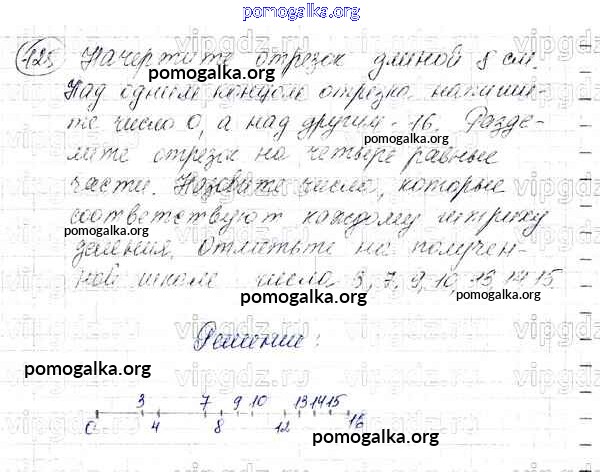 pomogalka.org
125 Начертите отрезок длиной 8 см.
pomogalka.org
Над одним концом отрезка напиши-
те число 0, а над другим - 16. Разде-
pomogalka.org
лите отрезок на четыре равные
части. Назовите числа, которые
соответствуют каждому штриху
pomogalka.org
деления, отметьте на получен-
ной шкале числа 3, 7, 9, 10, 13, 14, 15
pomogalka.org
pomogalka.org
Решение:
pomogalka.org
3 7 9 10 13 14 15
0 4 8 12 16
pomogalka.org